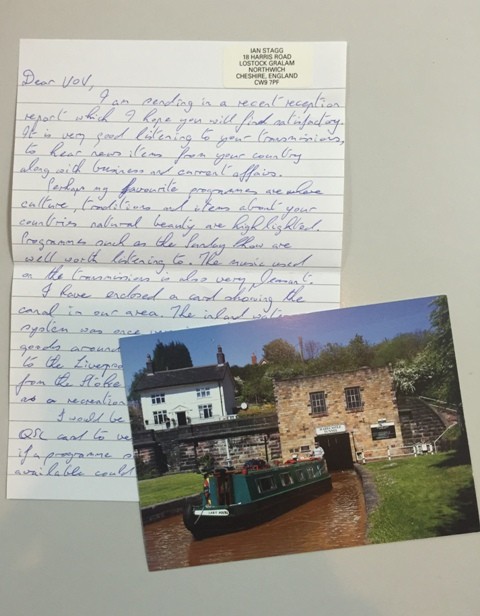 IAN STAGG
18 HARRIS ROAD
LOSTOCK GRALAM
NORTHWICH
CHESHIRE, ENGLAND
CW9 7PF
Dear VOV,
I am sending in a recent reception
report which I hope you will find satisfactory.
It is very good listening to your transmissions,
to hear news items from your country
along with business and current affairs.
Perhaps my favourite programmes are where
culture, traditions and items about your
countries natural beauty are highlighted.
Programmes such as the Sunday Show are
well worth listening to. The music used
on the transmissions is also very pleasant.
I have enclosed a card showing the
canal in our area. The inland
system was once
goods around
to the Liverpool
from the
as a recreation
I would be
QSL card to
if a programme
available could